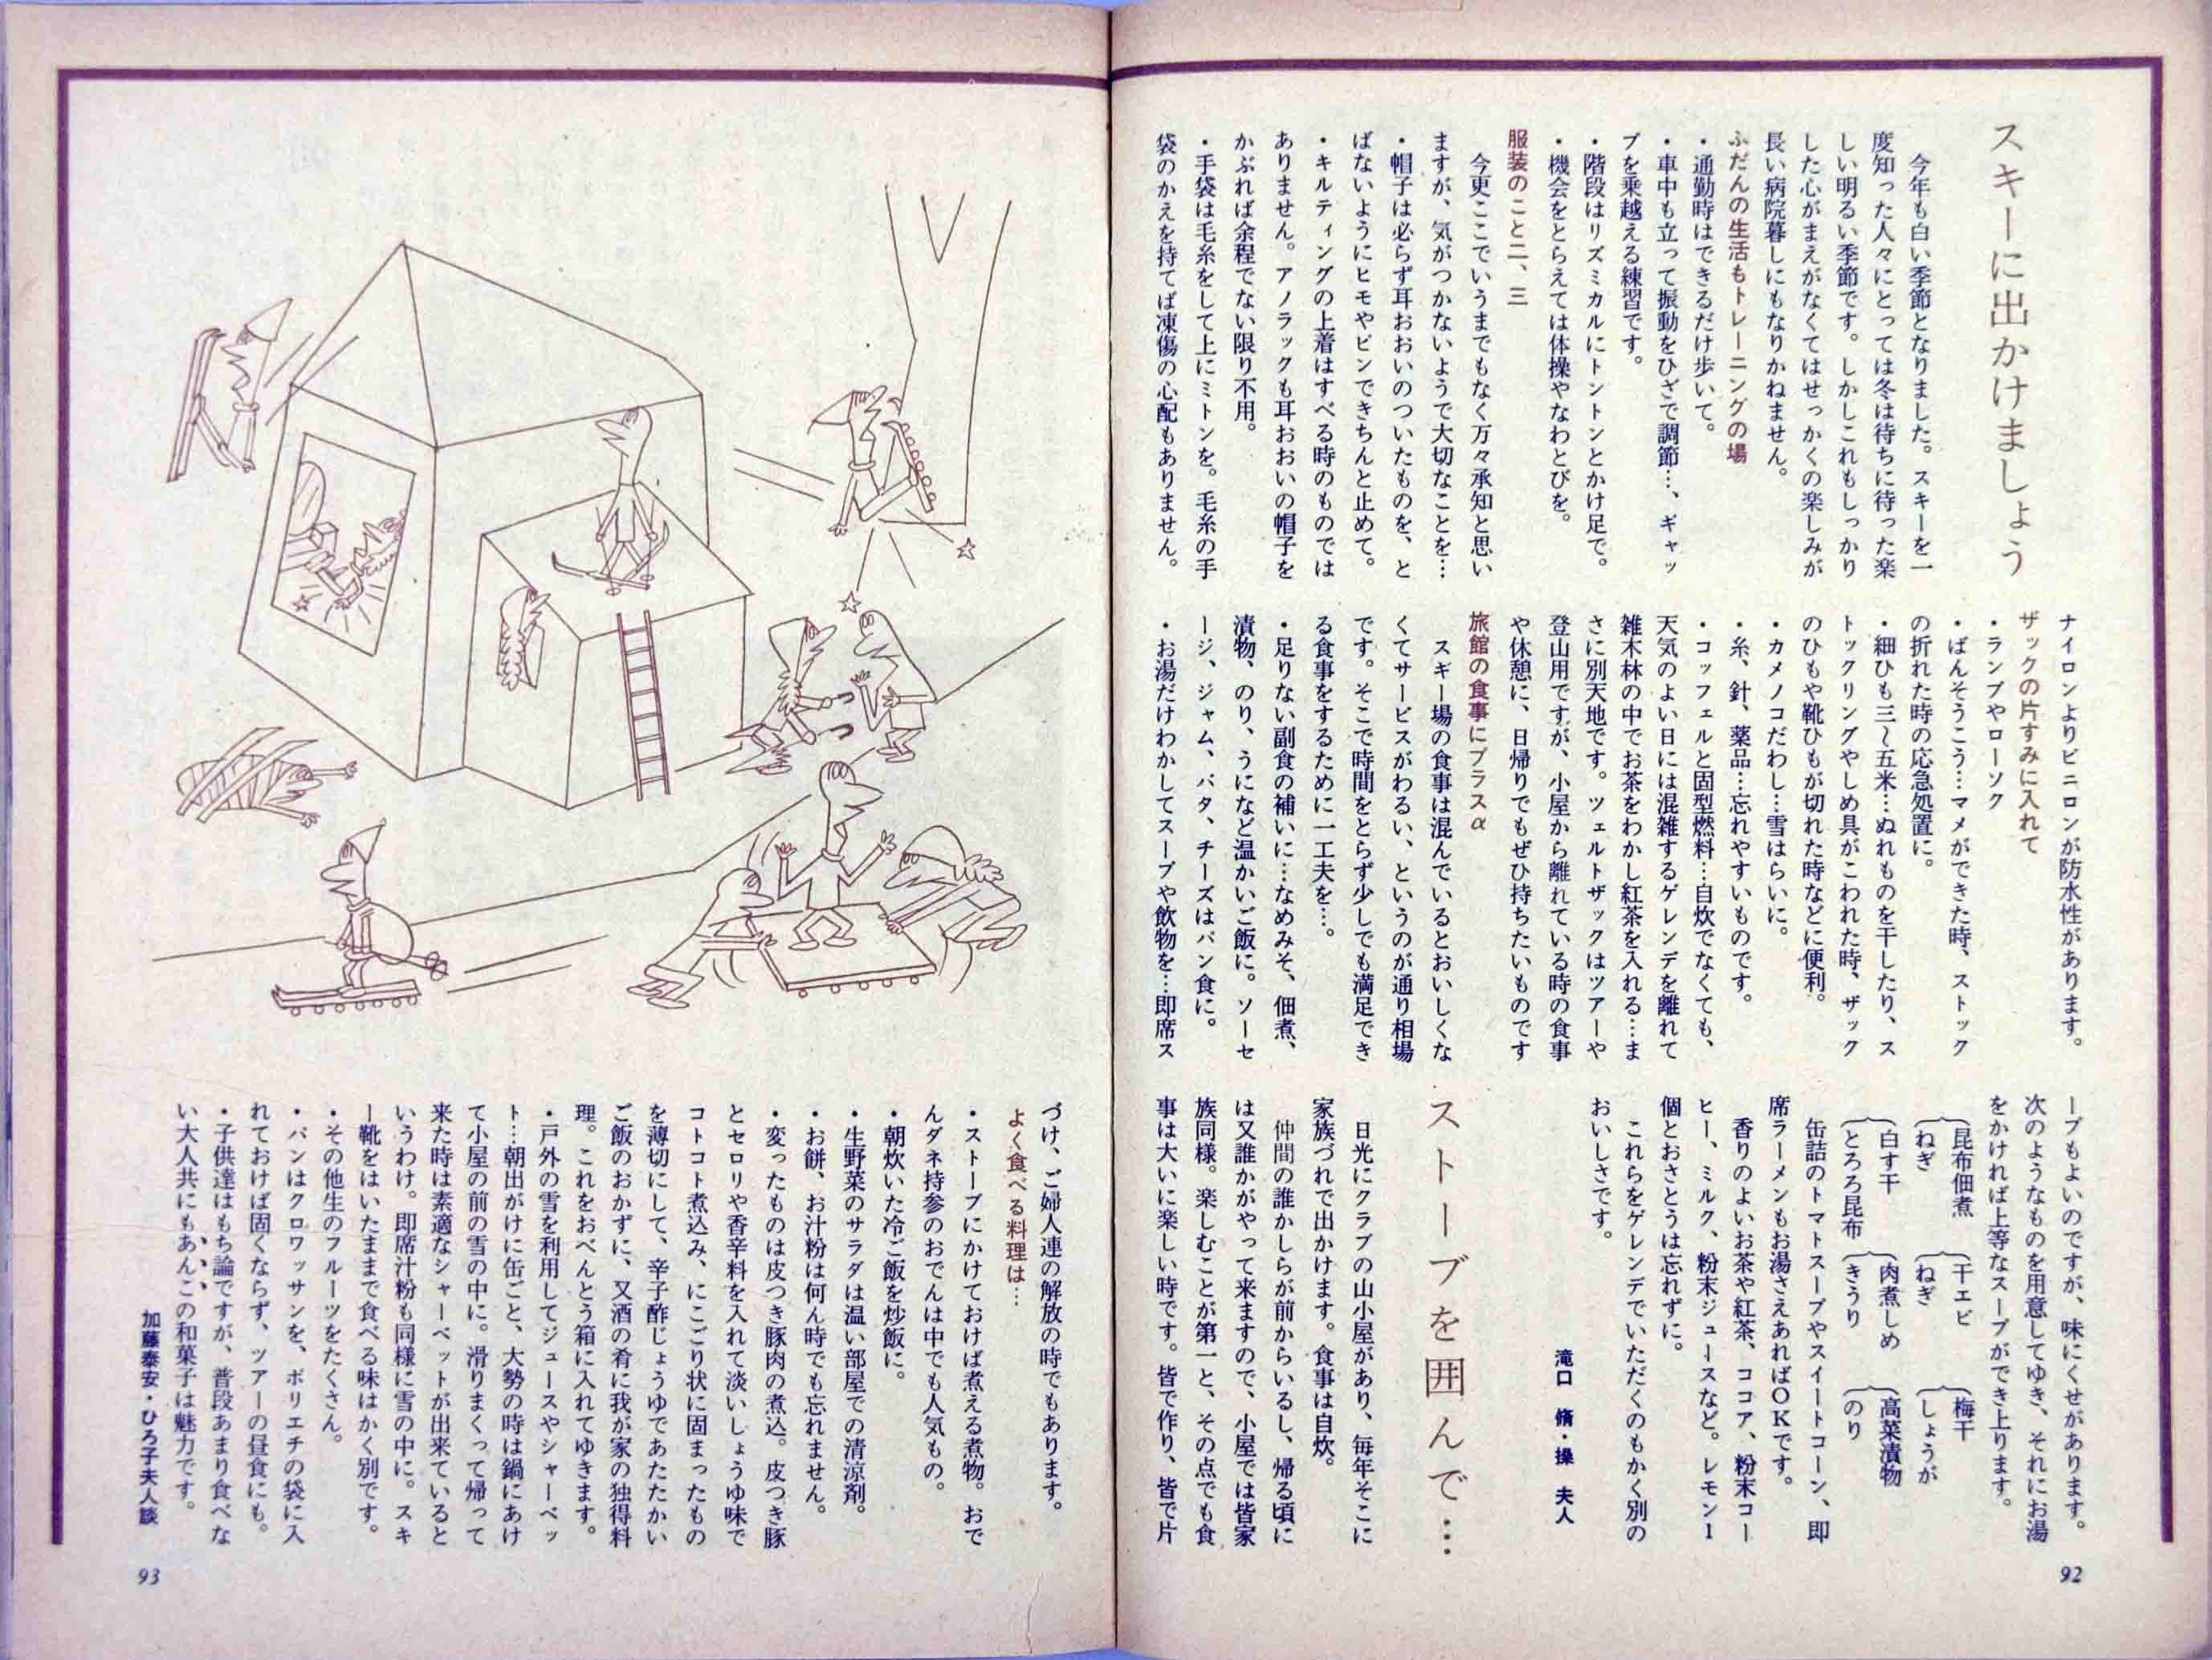 スキーに出かけましょう
今年も白い季節となりました。スキーを一
度知った人々にとっては冬は待ちに待った楽
しい明るい季節です。しかしこれもしっかり
した心がまえがなくてはせっかくの楽しみが
長い病院暮しにもなりかねません。
ふだんの生活もトレーニングの場
・通勤時はできるだけ歩いて。
・車中も立って振動をひざで調節…、ギャッ
プを乗越える練習です。
・階段はリズミカルにトントンとかけ足で。
・機会をとらえては体操やなわとびを。
服装のこと二、三
今更ここでいうまでもなく万々承知と思い
ますが、気がつかないようで大切なことを…
・帽子は必らず耳おおいのついたものを、と
ばないようにヒモやピンできちんと止めて。
・キルティングの上着はすべる時のものでは
ありません。アノラックも耳おおいの帽子を
かぶれば余程でない限り不用。
・手袋は毛糸をして上にミトンを。毛糸の手
袋のかえを持てば凍傷の心配もありません。
ナイロンよりビニロンが防水性があります。
ザックの片すみに入れて
・ランプやローソク
・ばんそうこう…マメができた時、ストック
の折れた時の応急処置に。
・細ひも三〜五米…ぬれものを干したり、ス
トックリングやしめ具がこわれた時、ザック
のひもや靴ひもが切れた時などに便利。
・カメノコだわし…雪はらいに。
・糸、針、薬品…忘れやすいものです。
・コッフェルと固型燃料…自炊でなくても、
天気のよい日には混雑するゲレンデを離れて
雑木林の中でお茶をわかし紅茶を入れる…ま
さに別天地です。ツェルトザックはツアーや
登山用ですが、小屋から離れている時の食事
や休憩に、日帰りでもぜひ持ちたいものです
旅館の食事にプラスα
スキー場の食事は混んでいるとおいしくな
くてサービスがわるい、というのが通り相場
です。そこで時間をとらず少しでも満足でき
る食事をするために一工夫を…。
・足りない副食の補いに…なめみそ、佃煮、
漬物、のり、うになど温かいご飯に。ソーセ
ージ、ジャム、バタ、チーズはパン食に。
・お湯だけわかしてスープや飲物を…即席ス
ープもよいのですが、味にくせがあります。
次のようなものを用意してゆき、それにお湯
をかければ上等なスープができ上ります。
昆布佃煮 干エビ 梅干
ねぎ ねぎ しょうが
白す干 肉煮しめ 高菜漬物
とろろ昆布 きうり のり
缶詰のトマトスープやスイートコーン、即
席ラーメンもお湯さえあればOKです。
香りのよいお茶や紅茶、ココア、粉末コー
ヒー、ミルク、粉末ジュースなど。レモン1
個とおさとうは忘れずに。
これらをゲレンデでいただくのもかく別の
おいしさです。
滝口 脩・操 夫人
ストーブを囲んで…
日光にクラブの山小屋があり、毎年そこに
家族づれで出かけます。食事は自炊。
仲間の誰かしらが前からいるし、帰る頃に
は又誰かがやって来ますので、小屋では皆家
族同様。楽しむことが第一と、その点でも食
事は大いに楽しい時です。皆で作り、皆で片
92
づけ、ご婦人連の解放の時でもあります。
よく食べる料理は…
・ストーブにかけておけば煮える煮物。おで
んダネ持参のおでんは中でも人気もの。
・朝炊いた冷ご飯を炒飯に。
・生野菜のサラダは温い部屋での清涼剤。
・お餅、お汁粉は何ん時でも忘れません。
・変ったものは皮つき豚肉の煮込。皮つき豚
とセロリや香辛料を入れて淡いしょうゆ味で
コトコト煮込み、にこごり状に固まったもの
を薄切にして、辛子酢じょうゆであたたかい
ご飯のおかずに、又酒の肴に我が家の独得料
理。これをおべんとう箱に入れてゆきます。
・戸外の雪を利用してジュースやシャーベッ
ト…朝出がけに缶ごと、大勢の時は鍋にあけ
て小屋の前の雪の中に。滑りまくって帰って
来た時は素適なシャーベットが出来ていると
いうわけ。即席汁粉も同様に雪の中に。スキ
ー靴をはいたままで食べる味はかく別です。
・その他生のフルーツをたくさん。
・パンはクロワッサンを、ポリエチの袋に入
れておけば固くならず、ツアーの昼食にも。
・子供達はもち論ですが、普段あまり食べな
い大人共にもあんこの和菓子は魅力です。
加藤泰安・ひろ子夫人談
93